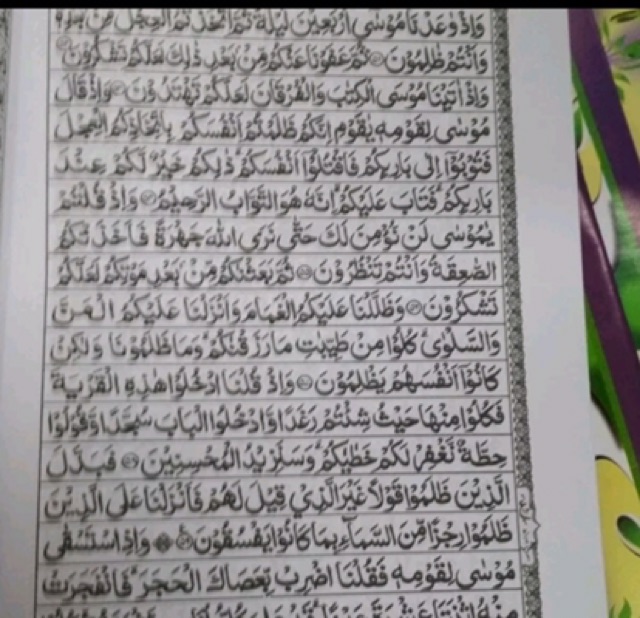 وَاِذْ وٰعَدْنَا مُوْسٰٓى اَرْبَعِيْنَ لَيْلَةً ثُمَّ اتَّخَذْتُمُ الْعِجْلَ مِنْۢ بَعْدِهٖ
وَاَنْتُمْ ظٰلِمُوْنَ ۝ ثُمَّ عَفَوْنَا عَنْكُمْ مِّنْۢ بَعْدِ ذٰلِكَ لَعَلَّكُمْ تَشْكُرُوْنَ ۝
وَاِذْ اٰتَيْنَا مُوْسَى الْكِتٰبَ وَالْفُرْقَانَ لَعَلَّكُمْ تَهْتَدُوْنَ ۝ وَاِذْ قَالَ
مُوْسٰى لِقَوْمِهٖ يٰقَوْمِ اِنَّكُمْ ظَلَمْتُمْ اَنْفُسَكُمْ بِاتِّخَاذِكُمُ الْعِجْلَ
فَتُوْبُوْٓا اِلٰى بَارِئِكُمْ فَاقْتُلُوْٓا اَنْفُسَكُمْ ذٰلِكُمْ خَيْرٌ لَّكُمْ عِنْدَ
بَارِئِكُمْ فَتَابَ عَلَيْكُمْ اِنَّهٗ هُوَ التَّوَّابُ الرَّحِيْمُ ۝ وَاِذْ قُلْتُمْ
يٰمُوْسٰى لَنْ نُّؤْمِنَ لَكَ حَتّٰى نَرَى اللّٰهَ جَهْرَةً فَاَخَذَتْكُمُ
الصّٰعِقَةُ وَاَنْتُمْ تَنْظُرُوْنَ ۝ ثُمَّ بَعَثْنٰكُمْ مِّنْۢ بَعْدِ مَوْتِكُمْ لَعَلَّكُمْ
تَشْكُرُوْنَ ۝ وَظَلَّلْنَا عَلَيْكُمُ الْغَمَامَ وَاَنْزَلْنَا عَلَيْكُمُ الْمَنَّ
وَالسَّلْوٰى كُلُوْا مِنْ طَيِّبٰتِ مَا رَزَقْنٰكُمْ وَمَا ظَلَمُوْنَا وَلٰكِنْ
كَانُوْٓا اَنْفُسَهُمْ يَظْلِمُوْنَ ۝ وَاِذْ قُلْنَا ادْخُلُوْا هٰذِهِ الْقَرْيَةَ
فَكُلُوْا مِنْهَا حَيْثُ شِئْتُمْ رَغَدًا وَّادْخُلُوا الْبَابَ سُجَّدًا وَّقُوْلُوْا
حِطَّةٌ نَّغْفِرْ لَكُمْ خَطٰيٰكُمْ وَسَنَزِيْدُ الْمُحْسِنِيْنَ ۝ فَبَدَّلَ
الَّذِيْنَ ظَلَمُوْا قَوْلًا غَيْرَ الَّذِيْ قِيْلَ لَهُمْ فَاَنْزَلْنَا عَلَى الَّذِيْنَ
ظَلَمُوْا رِجْزًا مِّنَ السَّمَآءِ بِمَا كَانُوْا يَفْسُقُوْنَ ۝ وَاِذِ اسْتَسْقٰى
مُوْسٰى لِقَوْمِهٖ فَقُلْنَا اضْرِبْ بِّعَصَاكَ الْحَجَرَ فَانْفَجَرَتْ
مِنْهُ اثْنَتَا عَشْرَةَ عَيْنًا